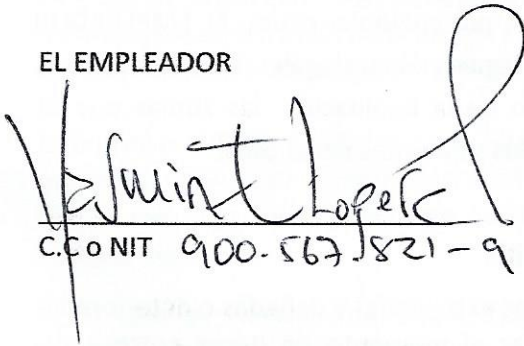 EL EMPLEADOR
Yasmin Lopera
C.C o NIT 900.567.821-9